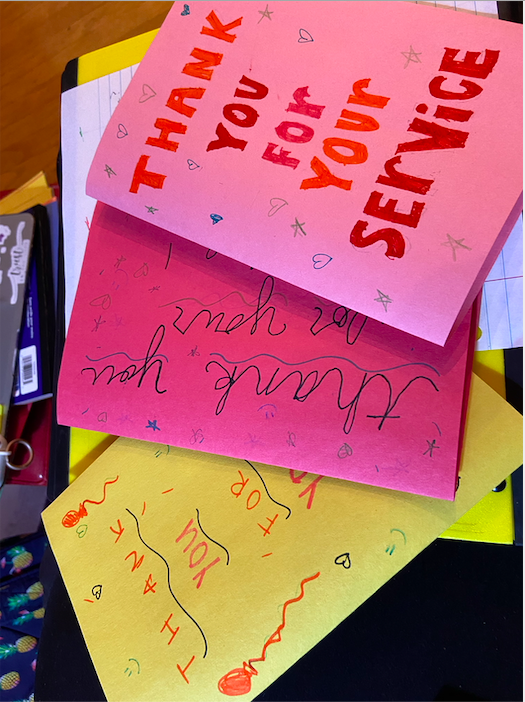 THANK
YOU
FOr
YOUr
SErViCE
thank you
for your
THANK
YOU
FOR